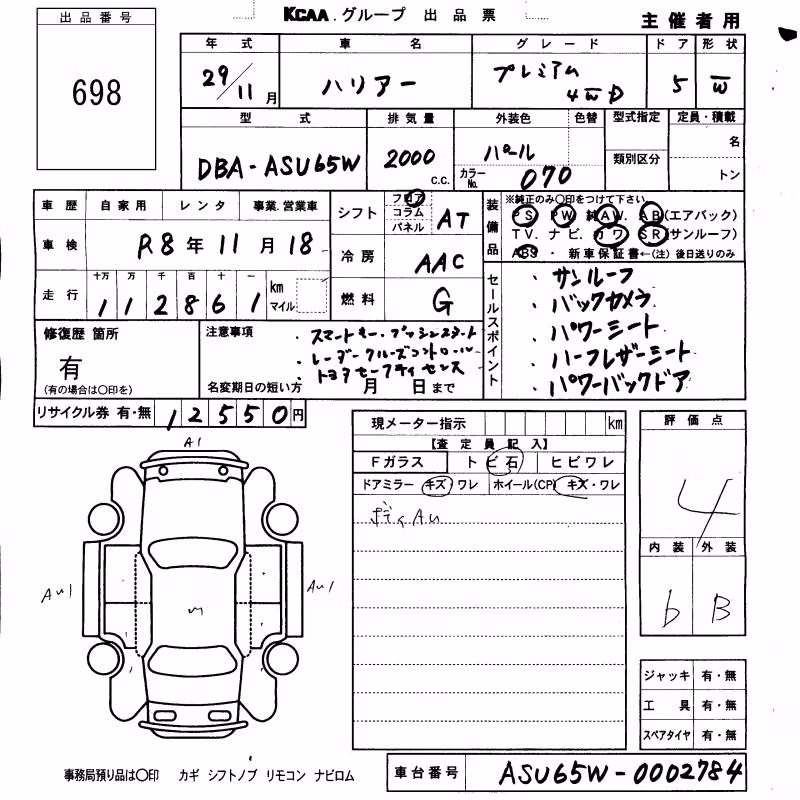 KCAA.グループ 出品票
主催者用
出品番号
698
年式 車名 グレード ドア 形状
29/11月 ハリアー プレミアム 4WD 5 W
型式 排気量 外装色 色替 型式指定 定員・積載
DBA-ASU65W 2000 C.C. パール 名
カラーNo. 070 類別区分 トン
車歴 自家用 レンタ 事業.営業車
車検 R8年11月18
走行 十万 万 千 百 十 一
112861 km マイル
シフト フロア コラム パネル AT
冷房 AAC
燃料 G
装備品
※純正のみ○印をつけて下さい
PS PW 純AW. AB(エアバック)
TV. ナビ. カワ SR(サンルーフ)
ABS ・新車保証書←(注)後日送りのみ
セールスポイント
・サンルーフ
・バックカメラ
・パワーシート
・ハーフレザーシート
・パワーバックドア
修復歴 箇所
有
(有の場合は○印を)
注意事項
・スマートキー.プッシュスタート
・レーダークルーズコントロール
・トヨタセーフティセンス
名変期日の短い方 月 日まで
リサイクル券 有・無 12550円
現メーター指示 km
【査定員記入】
Fガラス ト ビ石 ヒビワレ
ドアミラー キズ ワレ ホイール(CP) キズ・ワレ
ボディAU
A1
AU1
AU1
評価点
4
内装 外装
b B
ジャッキ 有・無
工具 有・無
スペアタイヤ 有・無
事務局預り品は○印 カギ シフトノブ リモコン ナビロム
車台番号 ASU65W-0002784